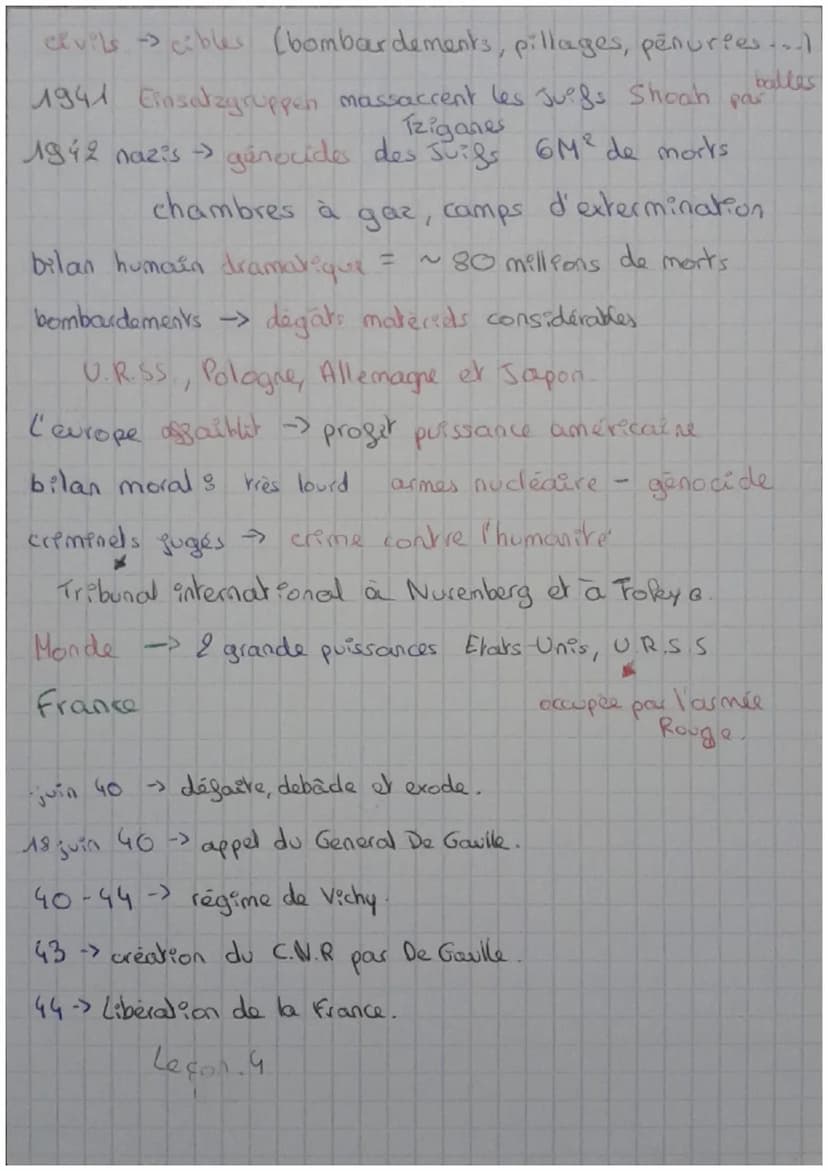 civils -> cibles (bombardements, pillages, pénuries...)
1941 Einsatzgruppen massacrent les Juifs Shoah par balles
Tziganes
1942 nazis -> génocides des Juifs 6M² de morts
chambres à gaz, camps d'extermination
bilan humain dramatique = ~ 80 millions de morts
bombardements -> dégâts matériels considérables
U.R.SS., Pologne, Allemagne et Japon.
L'europe affaiblit -> profit puissance américaine
bilan moral : très lourd armes nucléaire - génocide
criminels jugés -> crime contre l'humanité
Tribunal international à Nuremberg et à Tokyo.
Monde -> 2 grande puissances Etats-Unis, U.R.S.S
France
occupée par l'armée
Rouge.
juin 40 -> défaite, debâde et exode.
18 juin 40 -> appel du General De Gaulle.
40-44 -> régime de Vichy.
43 -> création du C.N.R par De Gaulle.
44 -> Libération de la France.
Leçon.4